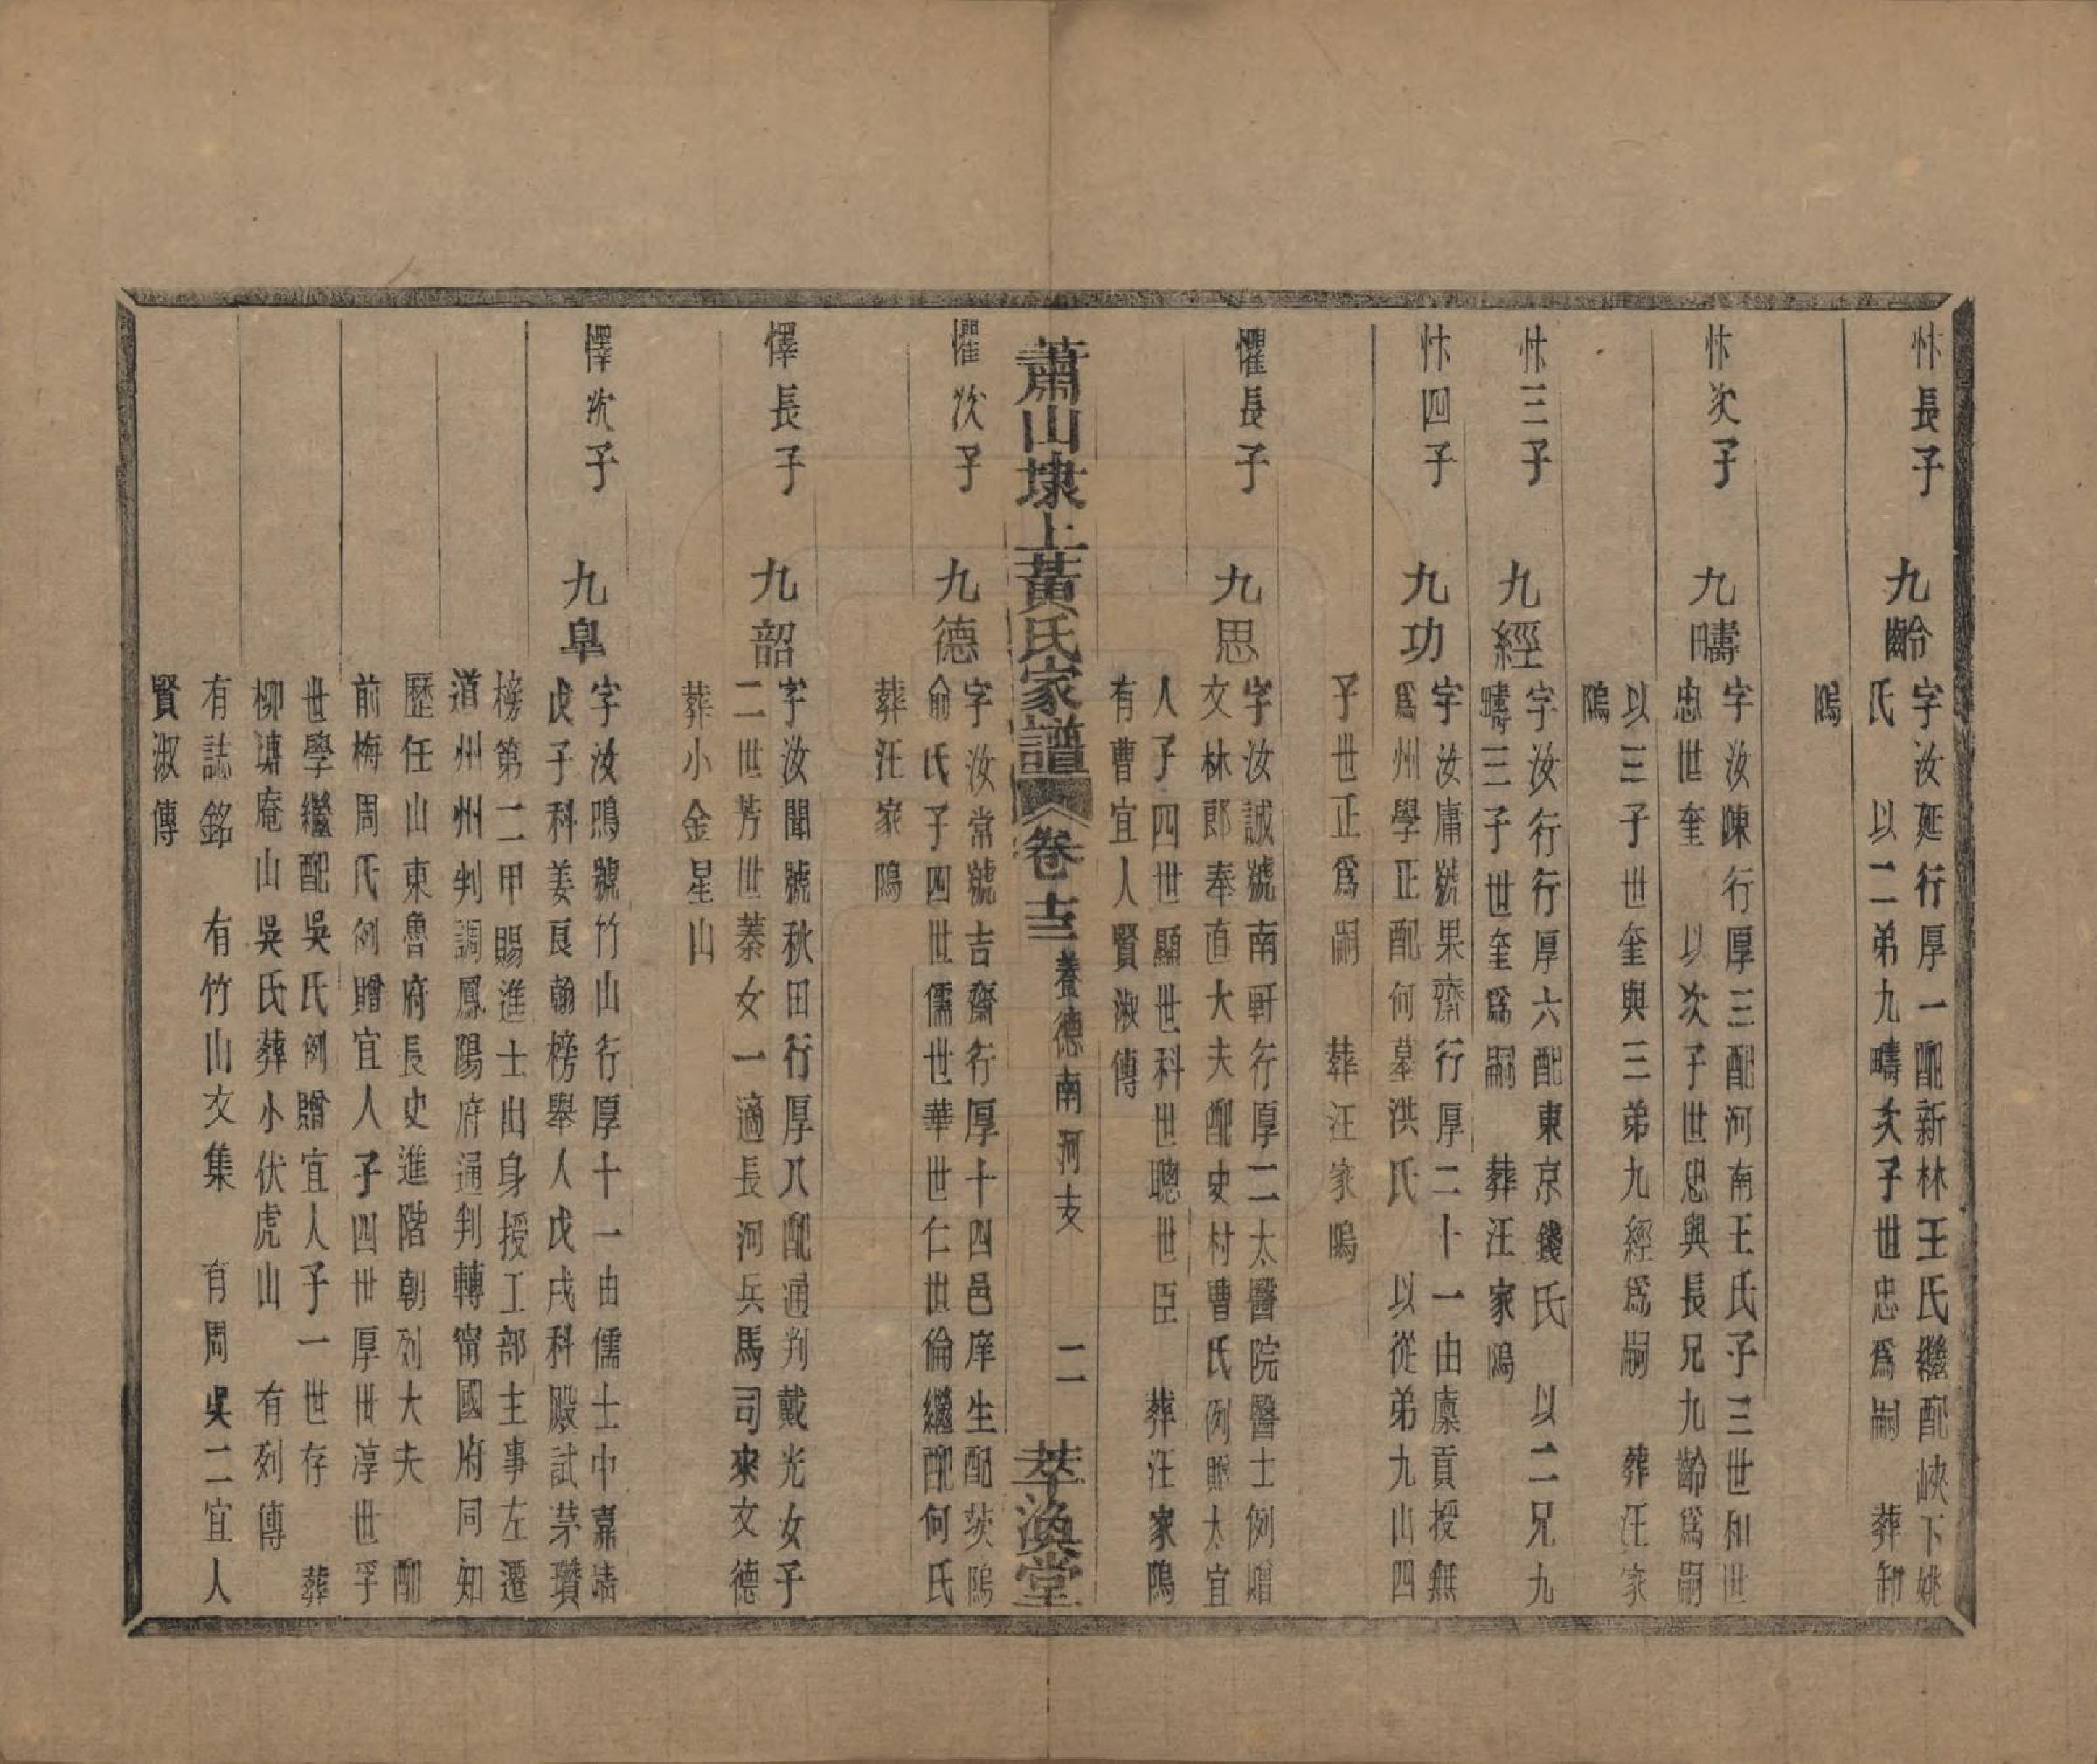 忭長子　九齡
字汝延行厚一配新林王氏繼配峽下姚
氏　以二弟九疇次子世忠爲嗣　葬
隖
忭次子　九疇
字汝陳行厚三配河南王氏子三世和世
忠世奎　以次子世忠與長兄九齡爲嗣
以三子世奎與三弟九經爲嗣　葬汪家
隖
忭三子　九經
字汝行行厚六配東京錢氏　以二兄九
疇三子世奎爲嗣　葬汪家隖
忭四子　九功
字汝庸號果齋行厚二十一由廩貢授無
爲州學正配何墓洪氏　以從弟九山四
子世正爲嗣　葬汪家隖
懼長子　九思
字汝誠號南軒行厚二太醫院醫士例贈
文林郎奉直大夫配史村曹氏例贈太宜
人子四世顯世科世聰世臣　葬汪家隖
有曹宜人賢淑傳
蕭山埭上黃氏家譜　卷十三　養德南河支　二　萃渙堂
懼次子　九德
字汝常號吉齋行厚十四邑庠生配茨隖
俞氏子四世儒世華世仁世倫繼配何氏
葬汪家隖
懌長子　九韶
字汝聞號秋田行厚八配通判戴光女子
二世芳世蓁女一適長河兵馬司來文德
葬小金星山
懌次子　九臯
字汝鳴號竹山行厚十一由儒士中嘉靖
戊子科姜良翰榜舉人戊戌科殿試茅瓚
榜第二甲賜進士出身授工部主事左遷
道州州判調鳳陽府通判轉甯國府同知
歷任山東魯府長史進階朝列大夫　配
前梅周氏例贈宜人子四世厚世淳世孚
世學繼配吳氏例贈宜人子一世存　葬
柳塘庵山吳氏葬小伏虎山　有列傳
有誌銘　有竹山文集　有周吳二宜人
賢淑傳